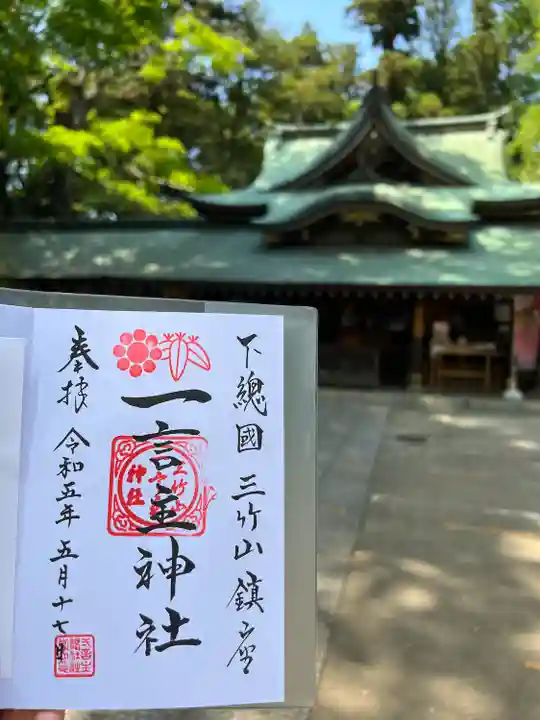 下總國 三竹山 鎮座
一言主神社
奉拝 令和五年 五月十七日